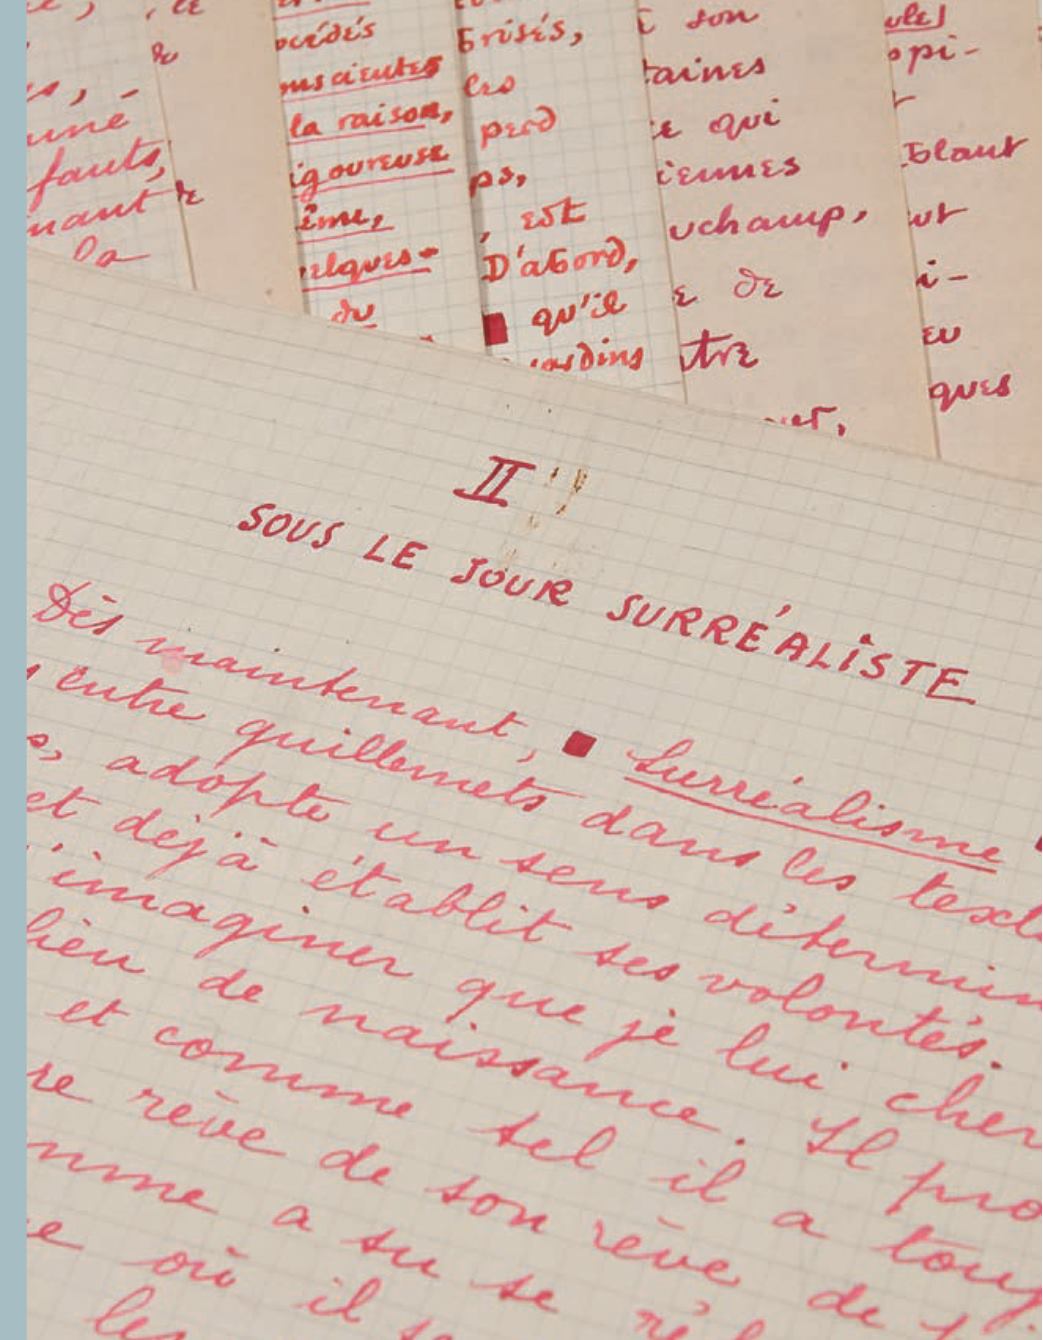 la
océdés
nscientes
la raison,
igoureuse
ême,
elques-
du
brisés,
les
perd
ps,
, est
D'abord,
qu'il
jardins
son
taines
e qui
iennes
uchamp,
e de
tre
ules
opi-
blant
ut
i-
eu
ques
une
fauts,
nant
II
SOUS LE JOUR SURRÉALISTE
Dès maintenant, ■ Surréalisme
entre guillemets dans les text
s, adopte un sens détermin
et déjà établit ses volontés.
'imaginer que je lui cher
lieu de naissance. Il pro
et comme tel il a touj
re rêve de son rêve de
mme a su se ré
e où il se
les